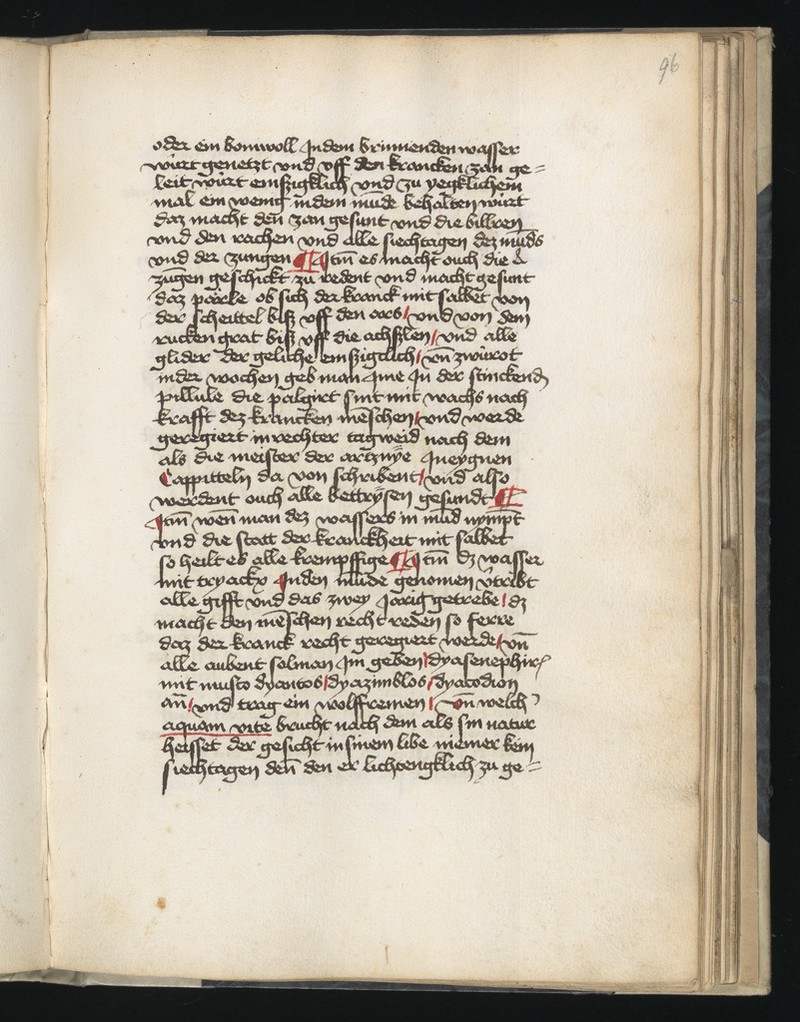 96
oder ein bomwoll Jndem brinnenden wasser
würt genetzt vnd vff den krancken zan ge=
leit würt emßzigklich vnd zu yegklichem
mal ein wenig indem mūde behalten würt
daz macht den̄ zan gesunt vnd die billren
vnd den rachen vnd alle siechtagen dez mūds
vnd der zungen ¶ Jtm̄ es macht ouch die
zūgen geschickt zu redent vnd macht gesunt
daz parle ob sich der kranck mit salbet von
der scheittel biß vff den ars / vnd von dem
rucken grat biß vff die achßlen / vnd alle
glider der geliche emßzigclich / vn̄ zwürot
inder wochen geb man Jme Jn der stinckend
pillule die palgirt sint mit wachs nach
krafft dez krancken mēschen / vnd werde
geregiert in rechter tagweid nach dem
als die meister der artznÿe Jn eygnen
Cappitteln da von schribent / vnd also
werdent ouch alle bettrÿsen gesundt ¶
Jtm̄ wen̄ man dez wassers in mūd nympt
vnd die statt der kranckheit mit salbet
so heilt es alle krempffige ¶ Jtm̄ dz wasser
mit tryackx Jnden mūde genomen v̄tribt
alle gifft vnd das zwey Jarig getrebe / dz
macht den mēschen recht reden so ferre
daz der kranck recht geregiert werde / vn̄
alle aubent solman Jm geben / dyasenephir
mit musco dyantos / dyazimblos / dyacodion
an̄ / vnd trag ein wolffremen / Vn̄ welch
aquam vite brucht nach dem als sin natur
heisset der gesicht in sinem libe niemer kein
siechtagen den̄ den er lichtengklich zu ge=